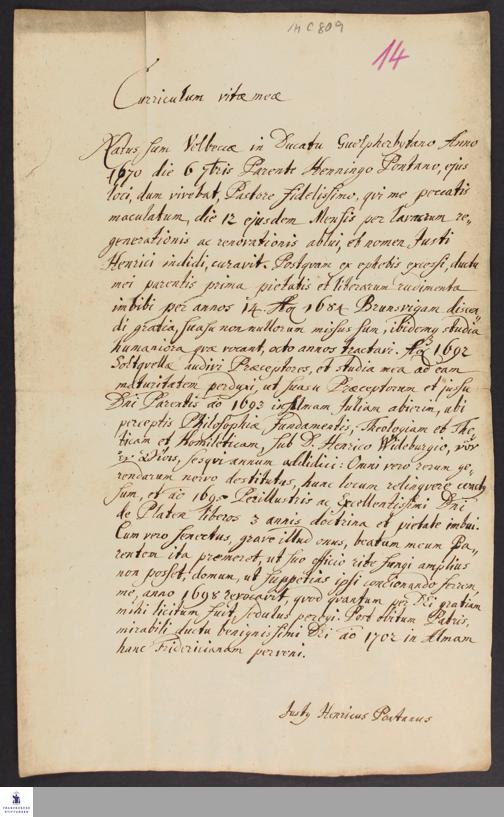 14 C 809
14
Curriculum vitæ meæ
Natus sum Volbecæ in Ducatu Guelpherbytano Anno
1670 die 6 7bris Parente Henningo Pontano, ejus
loci, dum vivebat, Pastore fidelissimo, qvi me peccatis
maculatum, die 12 ejusdem Mensis per lavacrum re-
generationis ac renovationis ablui, et nomen Justi
Henrici indidi, curavit. Postqvam ex ephebis excessi, ductu
mei parentis prima pietatis et literarum rudimenta
imbibi per annos 14. 1684 Brunsvigam
di gratia, suasu nonnullorum missus sum, ibidemq studia
humaniora qvæ vocant, octo annos tractavi. 1692
Soltqvellæ audivi Præceptores, et studia mea ad eam
maturitatem perduxi, ut suasu Præceptorum et jussu
Dni Parentis aõ 1693 in Almam Juliam abierim, ubi
perceptis Philosophiæ Fundamentis, Theologiam et The-
ticam et Homileticam, sub D. Henrico Wideburgio,
sesqvi annum addidici: Omni vero rerum ge-
rendarum nervo destitutus, hunc locum relinqvere
sum, et aõ Perillustris ac Excellentissimi Dni
de Platen liberos 3 annis doctrina et pietate imbui.
Cum vero senectus, grave illud onus, beatum meum Pa-
rentem ita premeret, ut suo officio rite fungi amplius
non posset, domum, ut suppetias ipsi concionando ferrem,
me, anno 1698 revocavit, qvod qvantum per Dei gratiam
mihi licitum fuit, sedulus peregi. Post obitum Patris,
mirabili ductu benignissimi Dei aõ 1702 in Almam
hanc Fridericianam perveni.
Justq Henricus Pontanus
FRANCKESCHE
STIFTUNGEN